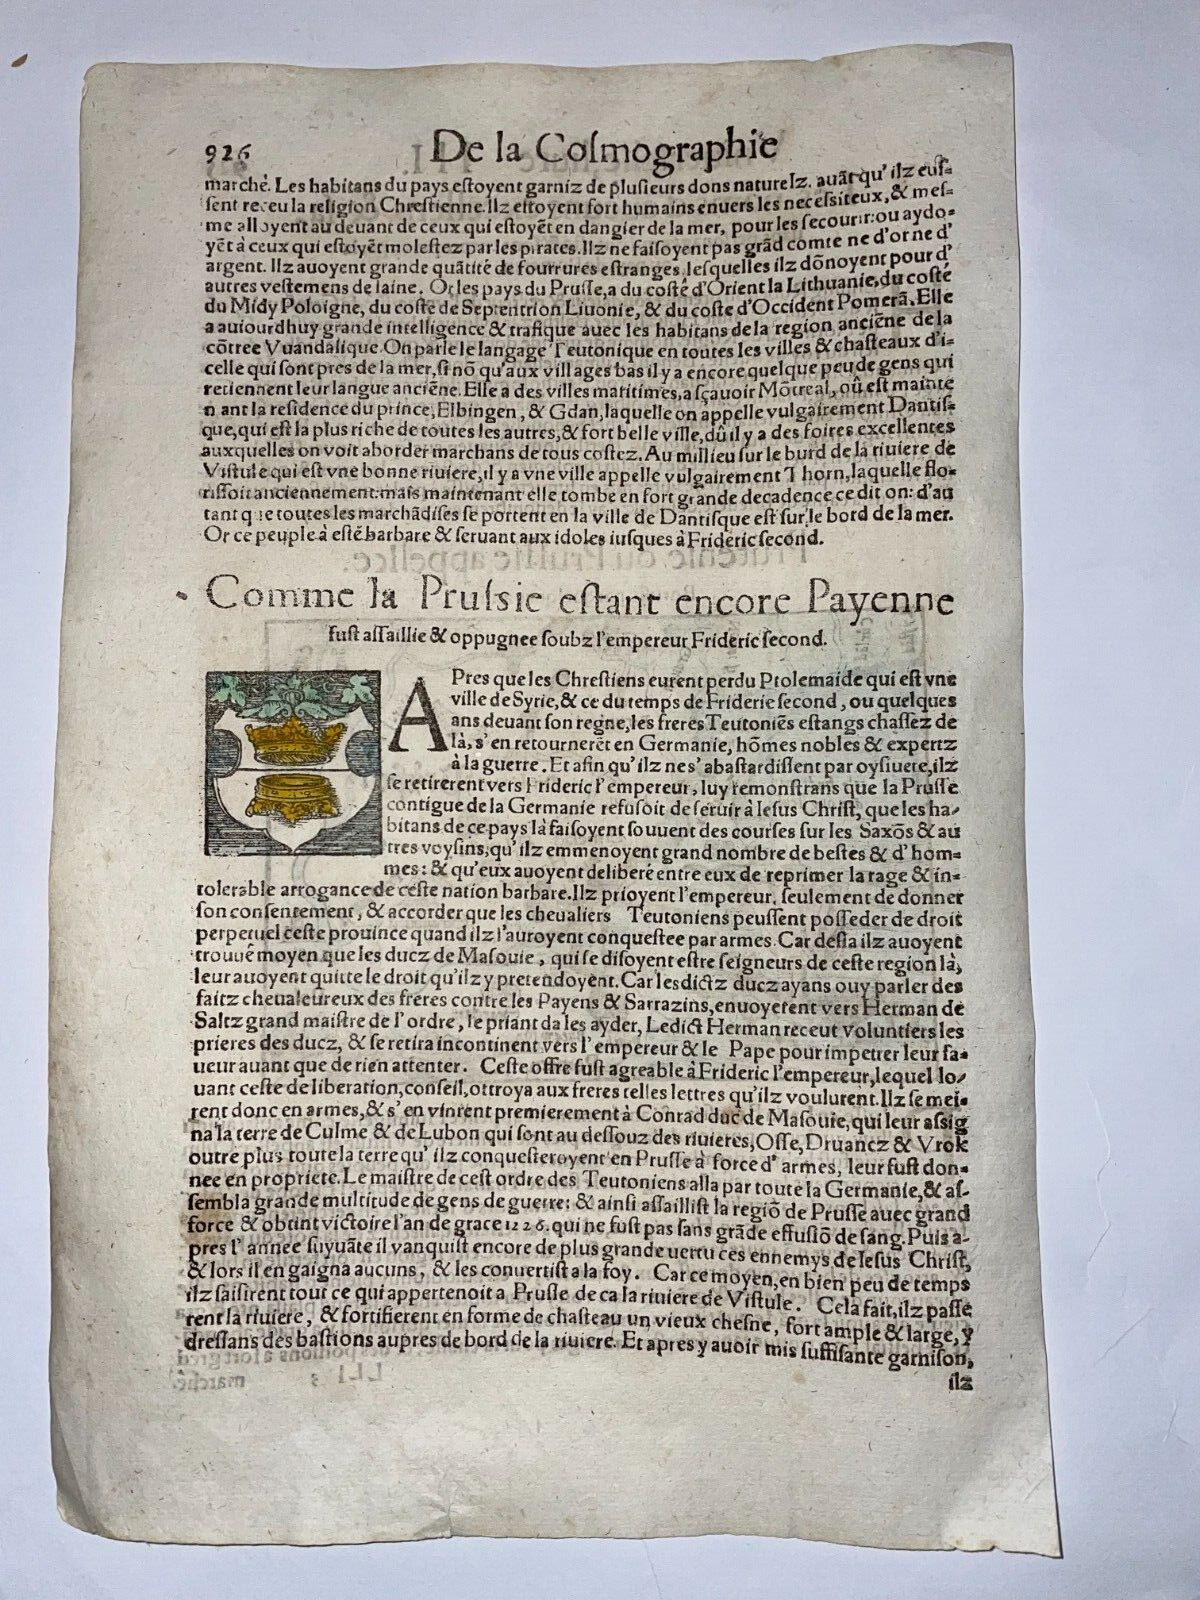 926 De la Coſmographie
marché. Les habitans du pays eſtoyent garniz de pluſieurs dons naturelz. auāt qu'ilz euſ-
ſent receu la religion Chreſtienne. Ilz eſtoyent fort humains enuers les neceſsiteux, & meſ-
me alloyent au deuant de ceux qui eſtoyēt en dangier de la mer, pour les ſecourir: ou aydo-
yēt à ceux qui eſtoyēt moleſtez par les pirates. Ilz ne faiſoyent pas grād comte ne d'or ne d'
argent. Ilz auoyent grande quātité de fourrures eſtranges, leſquelles ilz dōnoyent pour d'
autres veſtemens de laine. Or les pays du Pruſſe, a du coſté d'Orient la Lithuanie, du coſté
du Midy Poloigne, du coſté de Septentrion Liuonie, & du coſte d'Occident Pomerā. Elle
a auiourdhuy grande intelligence & trafique auec les habitans de la region anciēne de la
cōtree Vuandalique. On parle le langage Teutonique en toutes les villes & chaſteaux d'i-
celle qui ſont pres de la mer, ſi nō qu'aux villages bas il y a encore quelque peu de gens qui
retiennent leur langue anciēne. Elle a des villes maritimes, a ſçauoir Mōtreal, oû eſt mainte
nant la reſidence du prince, Elbingen, & Gdan, laquelle on appelle vulgairement Dantiſ-
que, qui eſt la plus riche de toutes les autres, & fort belle ville, dû il y a des foires excellentes
auxquelles on voit aborder marchans de tous coſtez. Au millieu ſur le burd de la riuiere de
Viſtule qui eſt vne bonne riuiere, il y a vne ville appelle vulgairement Thorn, laquelle flo-
riſſoit anciennement: mais maintenant elle tombe en fort grande decadence ce dit on: d'au
tant que toutes les marchādiſes ſe portent en la ville de Dantiſque eſt ſur, le bord de la mer.
Or ce peuple à eſtē barbare & ſeruant aux idoles iuſques à Frideric ſecond.
Comme la Pruſsie eſtant encore Payenne
fuſt aſſaillie & oppugnee ſoubz l'empereur Frideric ſecond.
APres que les Chreſtiens eurent perdu Ptolemaide qui eſt vne
ville de Syrie, & ce du temps de Friderie ſecond, ou quelques
ans deuant ſon regne, les freres Teutoniēs eſtangs chaſſez de
là, s'en retournerēt en Germanie, hōmes nobles & expertz
à la guerre. Et afin qu'ilz ne s'abaſtardiſſent par oyſiuete, ilz
ſe retirerent vers Frideric l'empereur, luy remonſtrans que la Pruſſe
contigue de la Germanie refuſoit de ſeruir à Ieſus Chriſt, que les ha-
bitans de ce pays là faiſoyent ſouuent des courſes ſur les Saxōs & au
tres voyſins, qu'ilz emmenoyent grand nombre de beſtes & d'hom-
mes: & qu'eux auoyent deliberé entre eux de reprimer la rage & in-
tolerable arrogance de ceſte nation barbare. Ilz prioyent l'empereur, ſeulement de donner
ſon conſentement, & accorder que les cheualiers Teutoniens peuſſent poſſeder de droit
perpetuel ceſte prouince quand ilz l'auroyent conqueſtee par armes. Car deſia ilz auoyent
trouué moyen que les ducz de Maſouie, qui ſe diſoyent eſtre ſeigneurs de ceſte region là,
leur auoyent quitte le droit qu'ilz y pretendoyent. Car lesdictz ducz ayans ouy parler des
faitz cheualeureux des freres contre les Payens & Sarrazins, enuoyerent vers Herman de
Saltz grand maiſtre de l'ordre, le priant da les ayder, Ledict Herman receut voluntiers les
prieres des ducz, & ſe retira incontinent vers l'empereur & le Pape pour impetrer leur fa-
ueur auant que de rien attenter. Ceſte offre fuſt agreable à Frideric l'empereur, lequel lo-
uant ceſte deliberation, conſeil, ottroya aux freres telles lettres qu'ilz voulurent. Ilz ſe mei-
rent donc en armes, & s'en vinrent premierement à Conrad duc de Maſouie, qui leur aſsig
na la terre de Culme & de Lubon qui ſont au deſſouz des riuieres, Oſſe, Druancz & Vrok
outre plus toute la terre qu'ilz conqueſteroyent en Pruſſe à force d'armes, leur fuſt don-
nee en propriete. Le maiſtre de ceſt ordre des Teutoniens alla par toute la Germanie, & aſ-
ſembla grande multitude de gens de guerre: & ainſi aſſailliſt la regiō de Pruſſe auec grand
force & obtint victoire l'an de grace 1226. qui ne fuſt pas ſans grāde effuſiō de ſang. Puis a-
pres l'annee ſuyuāte il vanquiſt encore de plus grande uertu ces ennemys de Ieſus Chriſt,
& lors il en gaigna aucuns, & les conuertiſt a la foy. Car ce moyen, en bien peu de temps
ilz ſaiſirent tout ce qui appertenoit a Pruſſe de ca la riuiere de Viſtule. Cela fait, ilz paſſe
rent la riuiere, & fortifierent en forme de chaſteau un vieux cheſne, fort ample & large, y
dreſſans des baſtions aupres de bord de la riuiere. Et apres y auoir mis ſuffiſante garniſon,
ilz